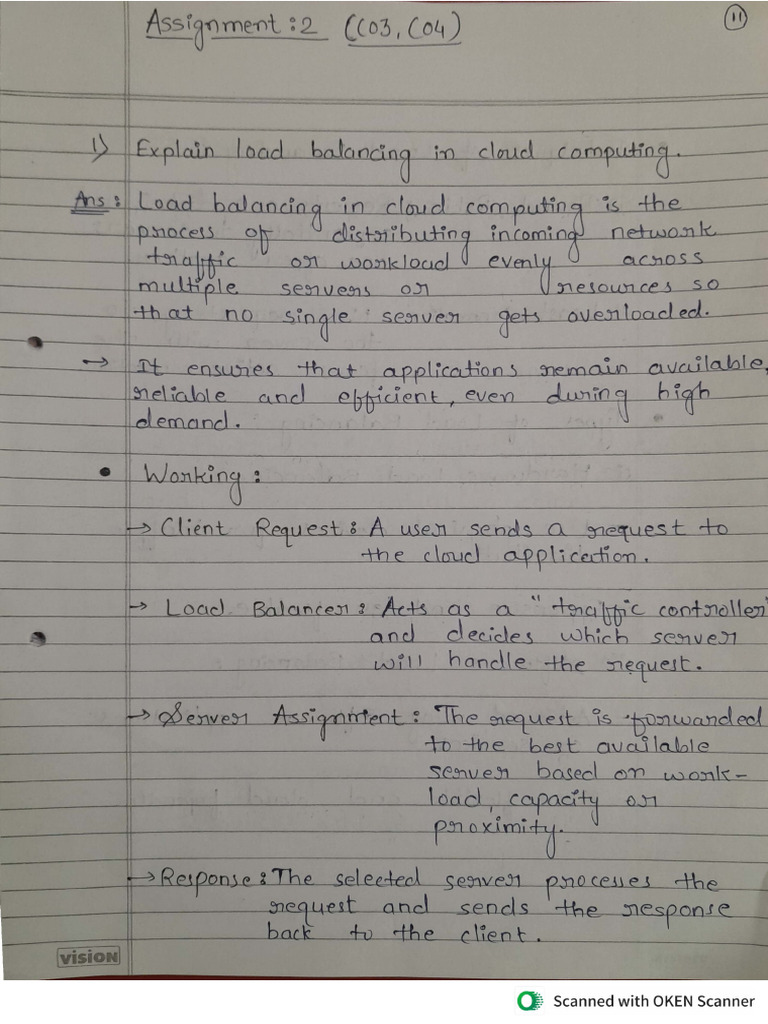 Assignment:2 (CO3, CO4)
11
1) Explain load balancing in cloud computing.
Ans: Load balancing in cloud computing is the
process of distributing incoming network
traffic or workload evenly across
multiple servers or resources so
that no single server gets overloaded.
→ It ensures that applications remain available,
reliable and efficient, even during high
demand.
• Working:
→ Client Request: A user sends a request to
the cloud application.
→ Load Balancer: Acts as a "traffic controller"
and decides which server
will handle the request.
→ Server Assignment: The request is forwarded
to the best available
server based on work-
load, capacity or
proximity.
→ Response: The selected server processes the
request and sends the response
back to the client.
vision
Scanned with OKEN Scanner